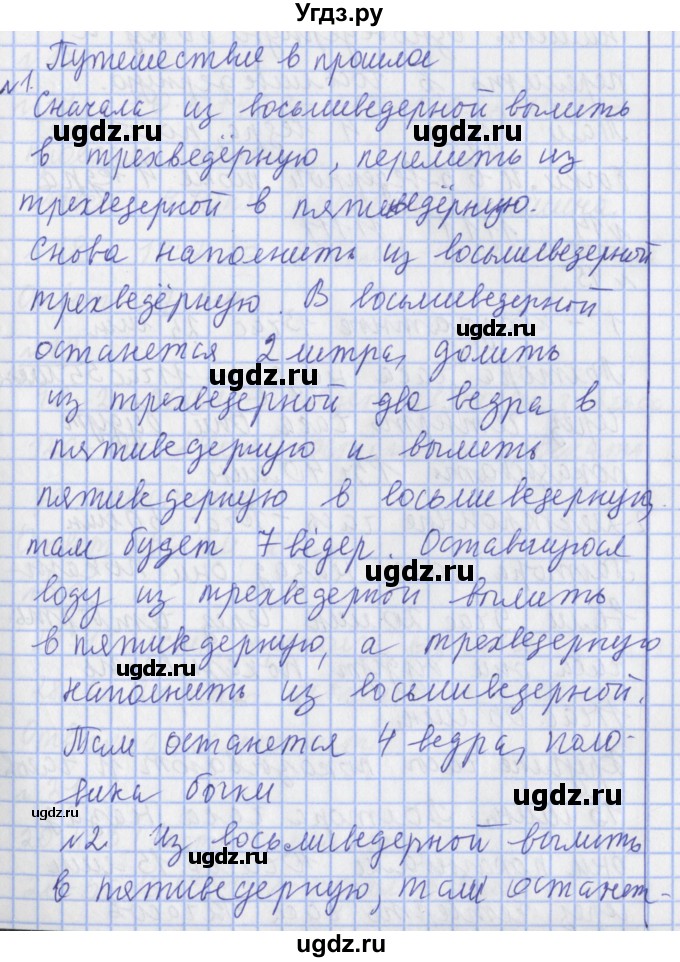 Угдз.ру
Путешествие в прошлое
№1.
Сначала из восьмиведерной вылить
в трехведёрную, перелить из
трехведерной в пятиведёрную.
Снова наполнить из восьмиведерной
трехведёрную. В восьмиведерной
останется 2 литра, долить
из трехведерной два ведра в
пятиведерную и вылить
пятиведерную в восьмиведерную,
там будет 7 ведер. Оставшуюся
воду из трехведерной вылить
в пятиведерную, а трехведерную
наполнить из восьмиведерной.
Там останется 4 ведра, поло-
вика бочки
№2 Из восьмиведерной вылить
в пятиведерную, там останет-
ugdz.ru
ugdz.ru
ugdz.ru
ugdz.ru
ugdz.ru
ugdz.ru
ugdz.ru
ugdz.ru
ugdz.ru
ugdz.ru
ugdz.ru
ugdz.ru